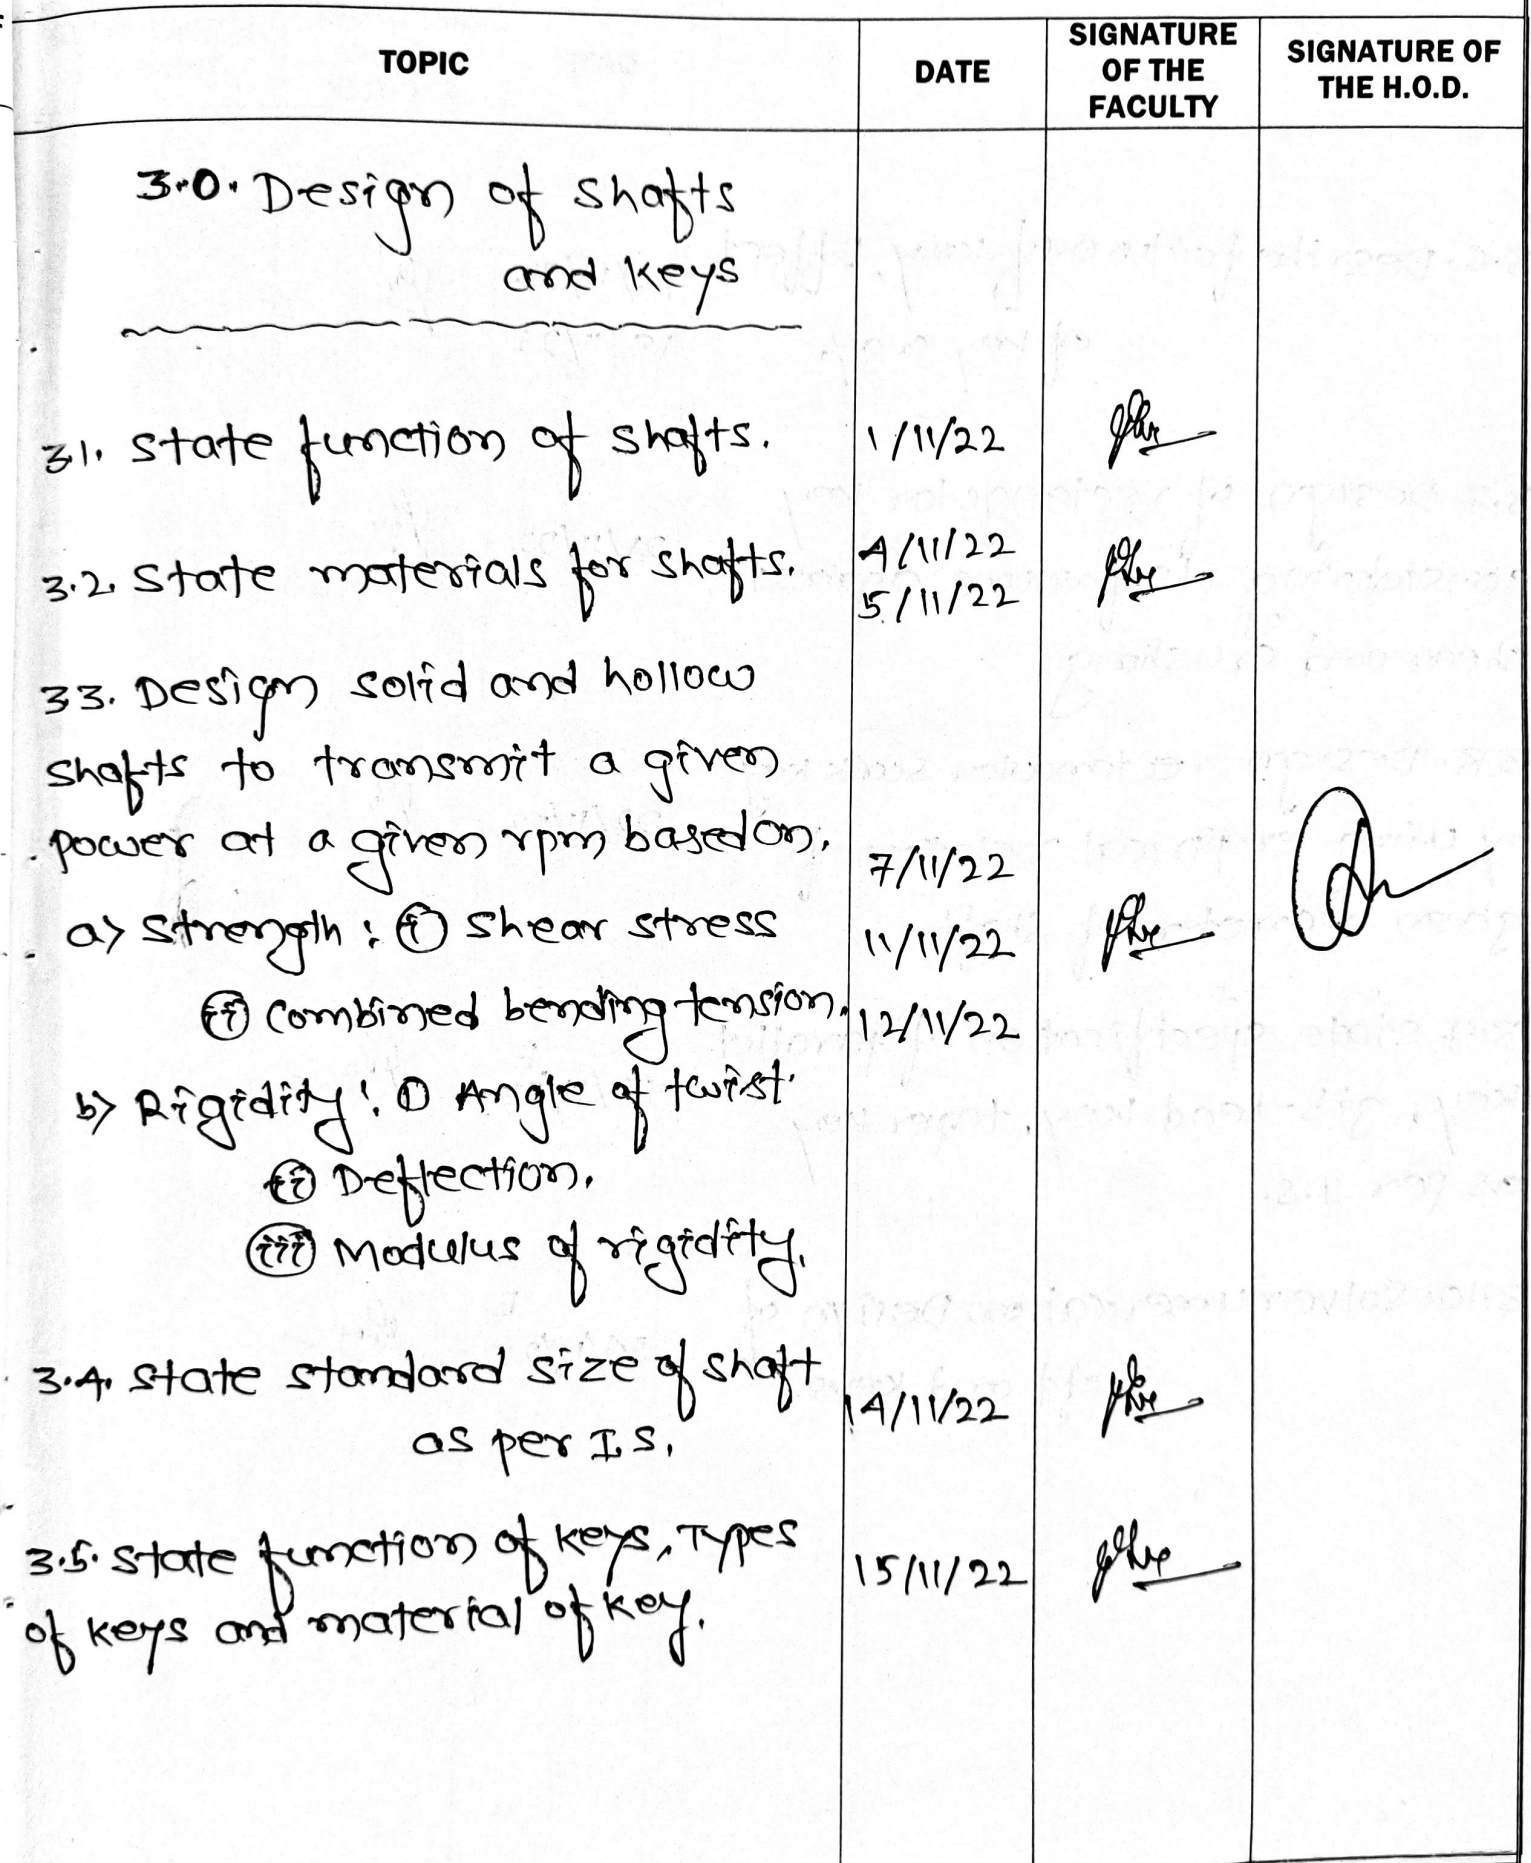 TOPIC
DATE
SIGNATURE
OF THE
FACULTY
SIGNATURE OF
THE H.O.D.
3.0. Design of shafts
and keys
3.1. State function of shafts.
1/11/22
3.2. State materials for shafts.
4/11/22
5/11/22
3.3. Design solid and hollow
shafts to transmit a given
power at a given rpm based on,
7/11/22
a) Strength: (i) Shear stress
11/11/22
(ii) Combined bending tension.
12/11/22
b) Rigidity: (i) Angle of twist.
(ii) Deflection.
(iii) Modulus of rigidity.
3.4. State standard size of shaft
14/11/22
as per I.S.
3.5. State function of keys, Types
15/11/22
of keys and material of key.